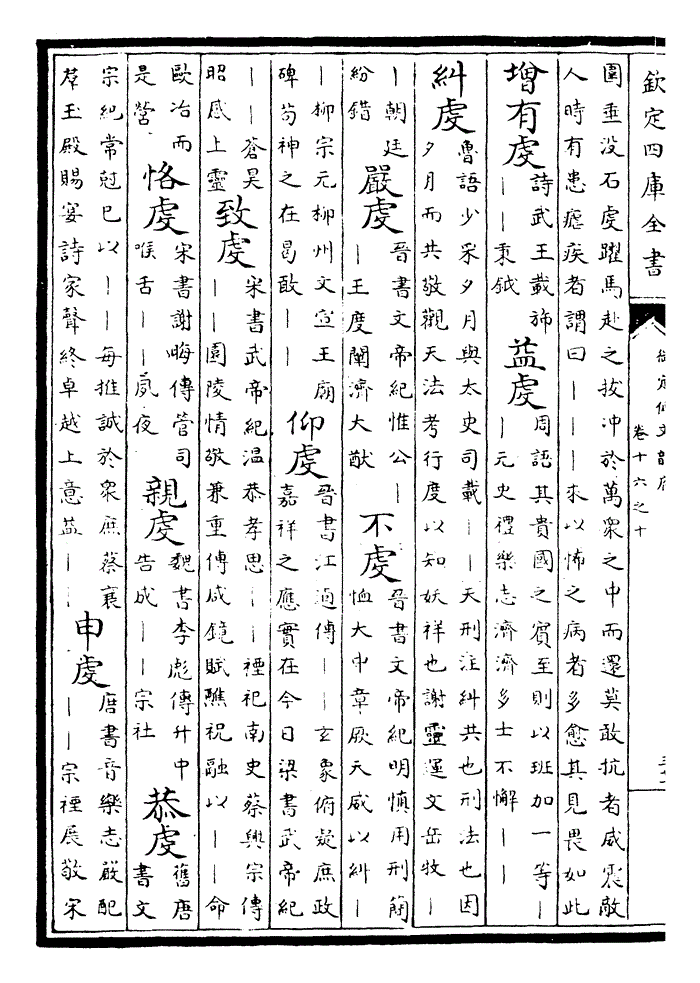 欽定四庫全書
御定佩文韻府
卷十六之十
圍垂沒石虔躍馬赴之拔冲於萬衆之中而還莫敢抗者威震敵
人時有患瘧疾者謂曰｜｜｜來以怖之病者多愈其見畏如此
增有虔
詩武王載斾
｜｜秉鉞
益虔
周語其貴國之賓至則以班加一等｜
｜元史禮樂志濟濟多士不懈｜｜
糾虔
魯語少采夕月與太史司載｜｜天刑注糾共也刑法也因
夕月而共敬觀天法考行度以知妖祥也謝靈運文岳牧｜
｜朝廷
紛錯
嚴虔
晉書文帝紀惟公｜
｜王度闡濟大猷
不虔
晉書文帝紀明慎用刑簡
恤大中章厥天威以糾｜
｜柳宗元柳州文宣王廟
碑苟神之在曷敢｜｜
仰虔
晉書江逌傳｜｜玄象俯凝庶政
嘉祥之應實在今日梁書武帝紀
｜｜蒼昊
昭感上靈
致虔
宋書武帝紀溫恭孝思｜｜禋祀南史蔡興宗傳
｜｜園陵情敬兼重傅咸鏡賦醮祝融以｜｜命
歐冶而
是營
恪虔
宋書謝晦傳管司
喉舌｜｜夙夜
親虔
魏書李彪傳升中
告成｜｜宗社
恭虔
舊唐
書文
宗紀常尅己以｜｜每推誠於衆庶蔡襄
羣玉殿賜宴詩家聲終卓越上意益｜｜
申虔
唐書音樂志嚴配
｜｜宗禋展敬宋